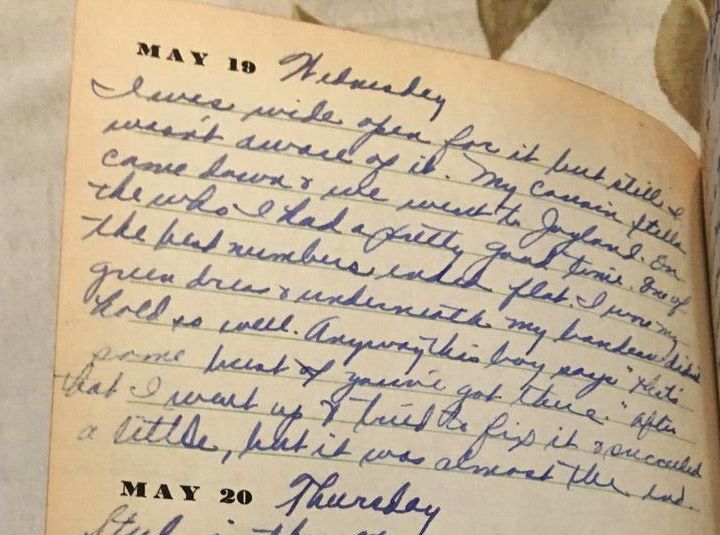 MAY 19 Wednesday
I was wide open for it but still I
wasn't aware of it. My cousin Stella
came down & we went to Joyland. On
the whole I had a pretty good time. One of
the best numbers ended flat. I wore my
green dress & underneath my bandeau didn't
hold so well. Anyway this boy says "that's
some bust you've got there." After
that I went up & tried to fix it & succeeded
a little, but it was almost the end.
MAY 20 Thursday